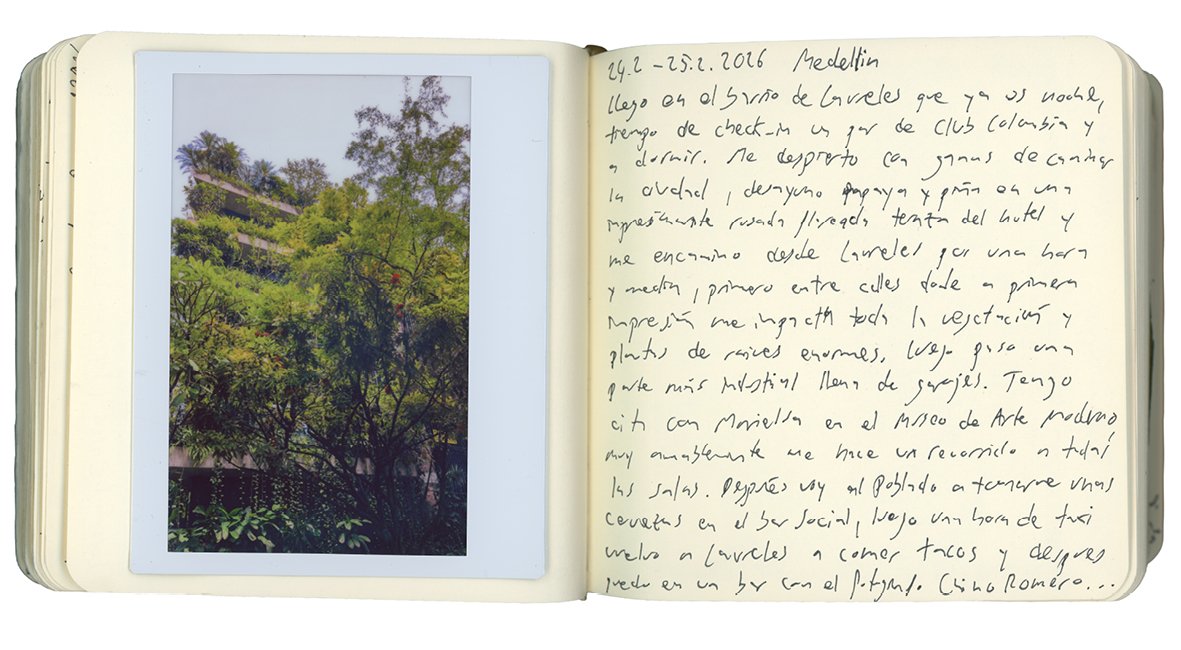 24.2 – 25.2. 2026 Medellin
llego en el barrio de Laureles que ya es noche,
tiempo de check-in un par de Club Colombia y
a dormir. Me despierto con ganas de caminar
la ciudad, desayuno papaya y piña en una
impresionante terraza del hotel y
me encamino desde Laureles por una hora
y media, primero entre calles donde a primera
impresión me impacta toda la vegetación y
plantas de raices enormes, luego pasa una
parte más industrial llena de garajes. Tengo
cita con en el Museo de Arte Moderno
muy amablemente me hace un recorrido a todas
las salas. Después voy al Poblado a tomarme unas
cervezas en el bar Social, luego una hora de taxi
vuelvo a Laureles a comer tacos y despues
quedo en un bar con el fotógrafo Chino Romero...